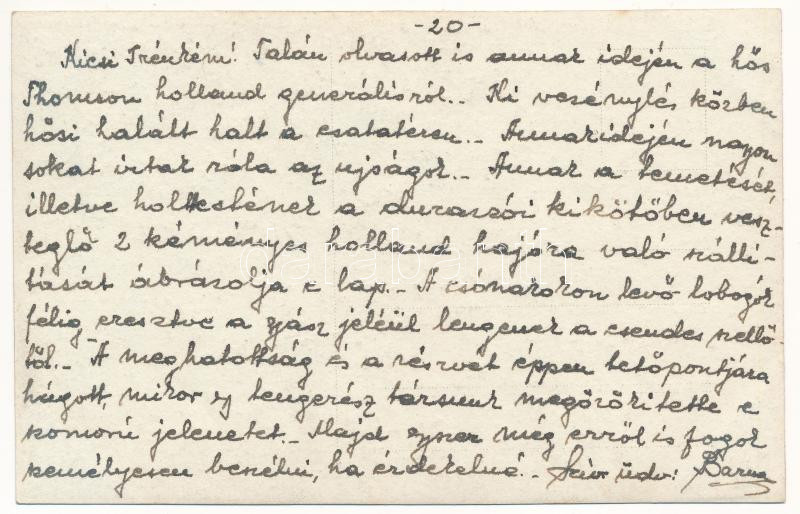 -20-
Kicsi Irénkém! Talán olvasott is annak idején a hős
Thomson holland generálisról.. Ki veszénylés közben
hősi halált halt a csatatéren.- Annakidején nagyon
sokat írtak róla az ujságok.- Annak a temetését,
illetve holttestének a durazzói kikötőben vesz-
teglő 2 kéményes holland hajóra való szállí-
tását ábrázolja e lap.- A csónakokon levő lobogók
félig eresztve a gyász jeléül lengenek a csendes szellő-
től.- A meghatottság és a részvét éppen tetőpontjára
hágott, mikor egy tengerész társunk megörökitette e
komorú jelenetet.- Majd egyszer még erről is fogok
személyesen beszélni, ha érdekelné.- Szív. üdv: Barna
darabanth